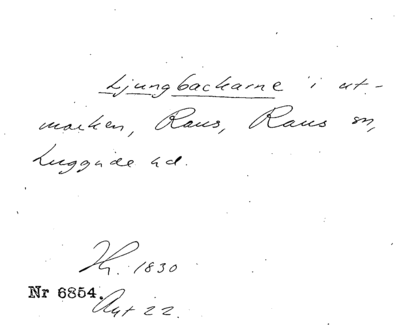 Ljungbackarne i ut-
marken, Raus, Raus sn,
Luggude hd.
Th. 1830
Nr 6854.
Akt 22.